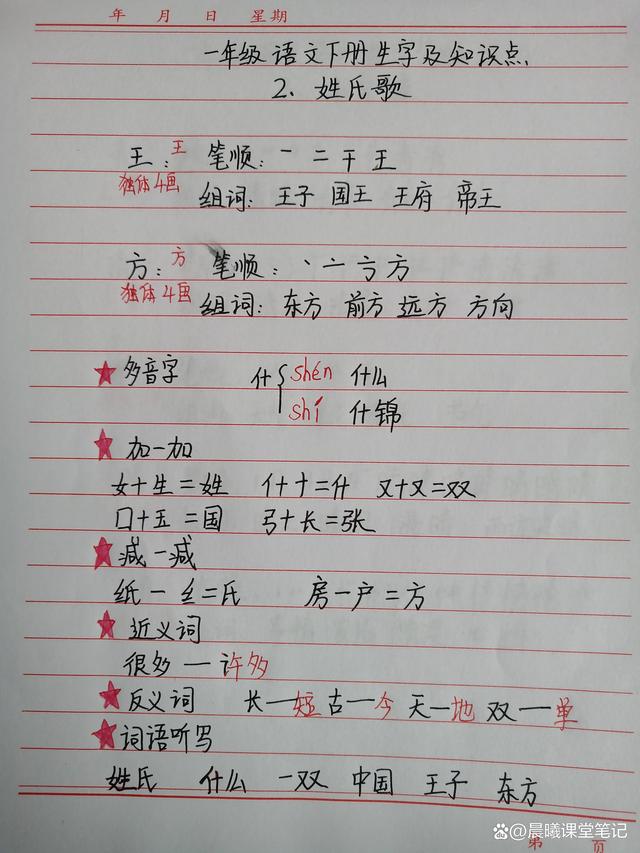 年 月 日 星期
一年级语文下册生字及知识点
2、姓氏歌
王：王 笔顺：一 二 干 王
独体4画 组词：王子 国王 王府 帝王
方：方 笔顺：丶 亠 亐 方
独体4画 组词：东方 前方 远方 方向
★ 多音字 什 { shén 什么
shí 什锦
★ 加一加
女+生=姓 亻+十=什 又+又=双
口+玉=国 弓+长=张
★ 减一减
纸-纟=氏 房-户=方
★ 近义词
很多—许多
★ 反义词 长—短 古—今 天—地 双—单
★ 词语听写
姓氏 什么 一双 中国 王子 东方
第 页
@晨曦课堂笔记